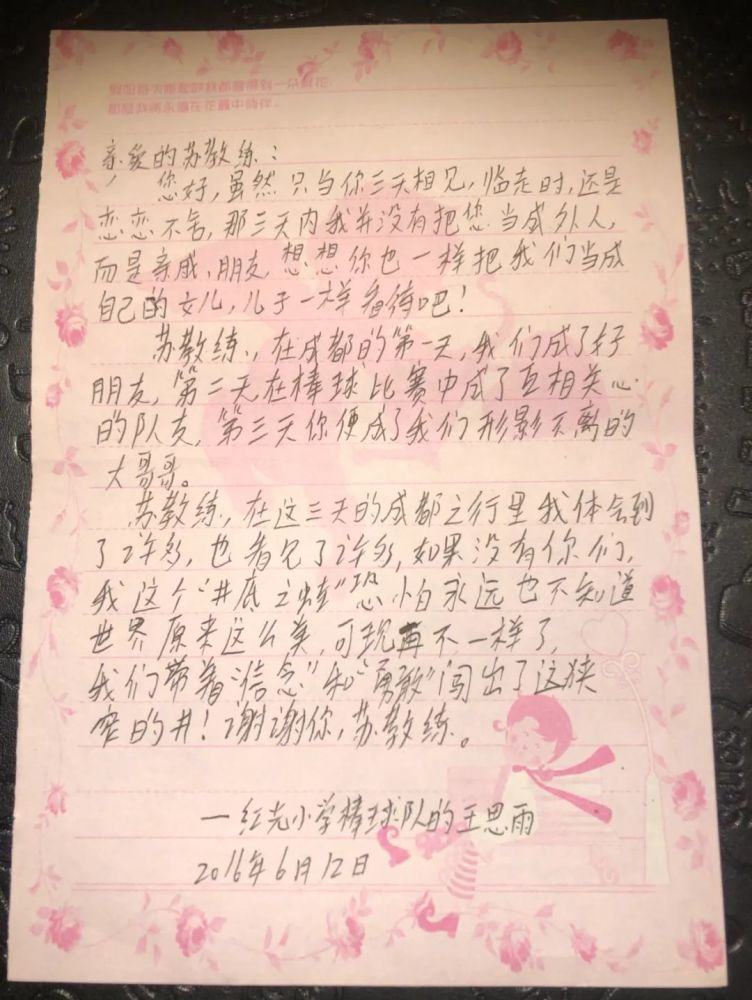 亲爱的苏教练：
您好，虽然只与你三天相见，临走时，还是
恋恋不舍，那三天内我并没有把您当成外人，
而是亲戚、朋友，想想你也一样把我们当成
自己的女儿，儿子一样看待吧！
苏教练，在成都的第一天，我们成了好
朋友，第二天在棒球比赛中成了互相关心
的队友，第三天你便成了我们形影不离的
大哥哥。
苏教练，在这三天的成都之行里我体会到
了许多，也看见了许多，如果没有你们，
我这个“井底之蛙”恐怕永远也不知道
世界原来这么美，可现再不一样了，
我们带着“信念”和“勇敢”闯出了这狭
窄的井！谢谢你，苏教练。
一红光小学棒球队的王思雨
2016年6月12日